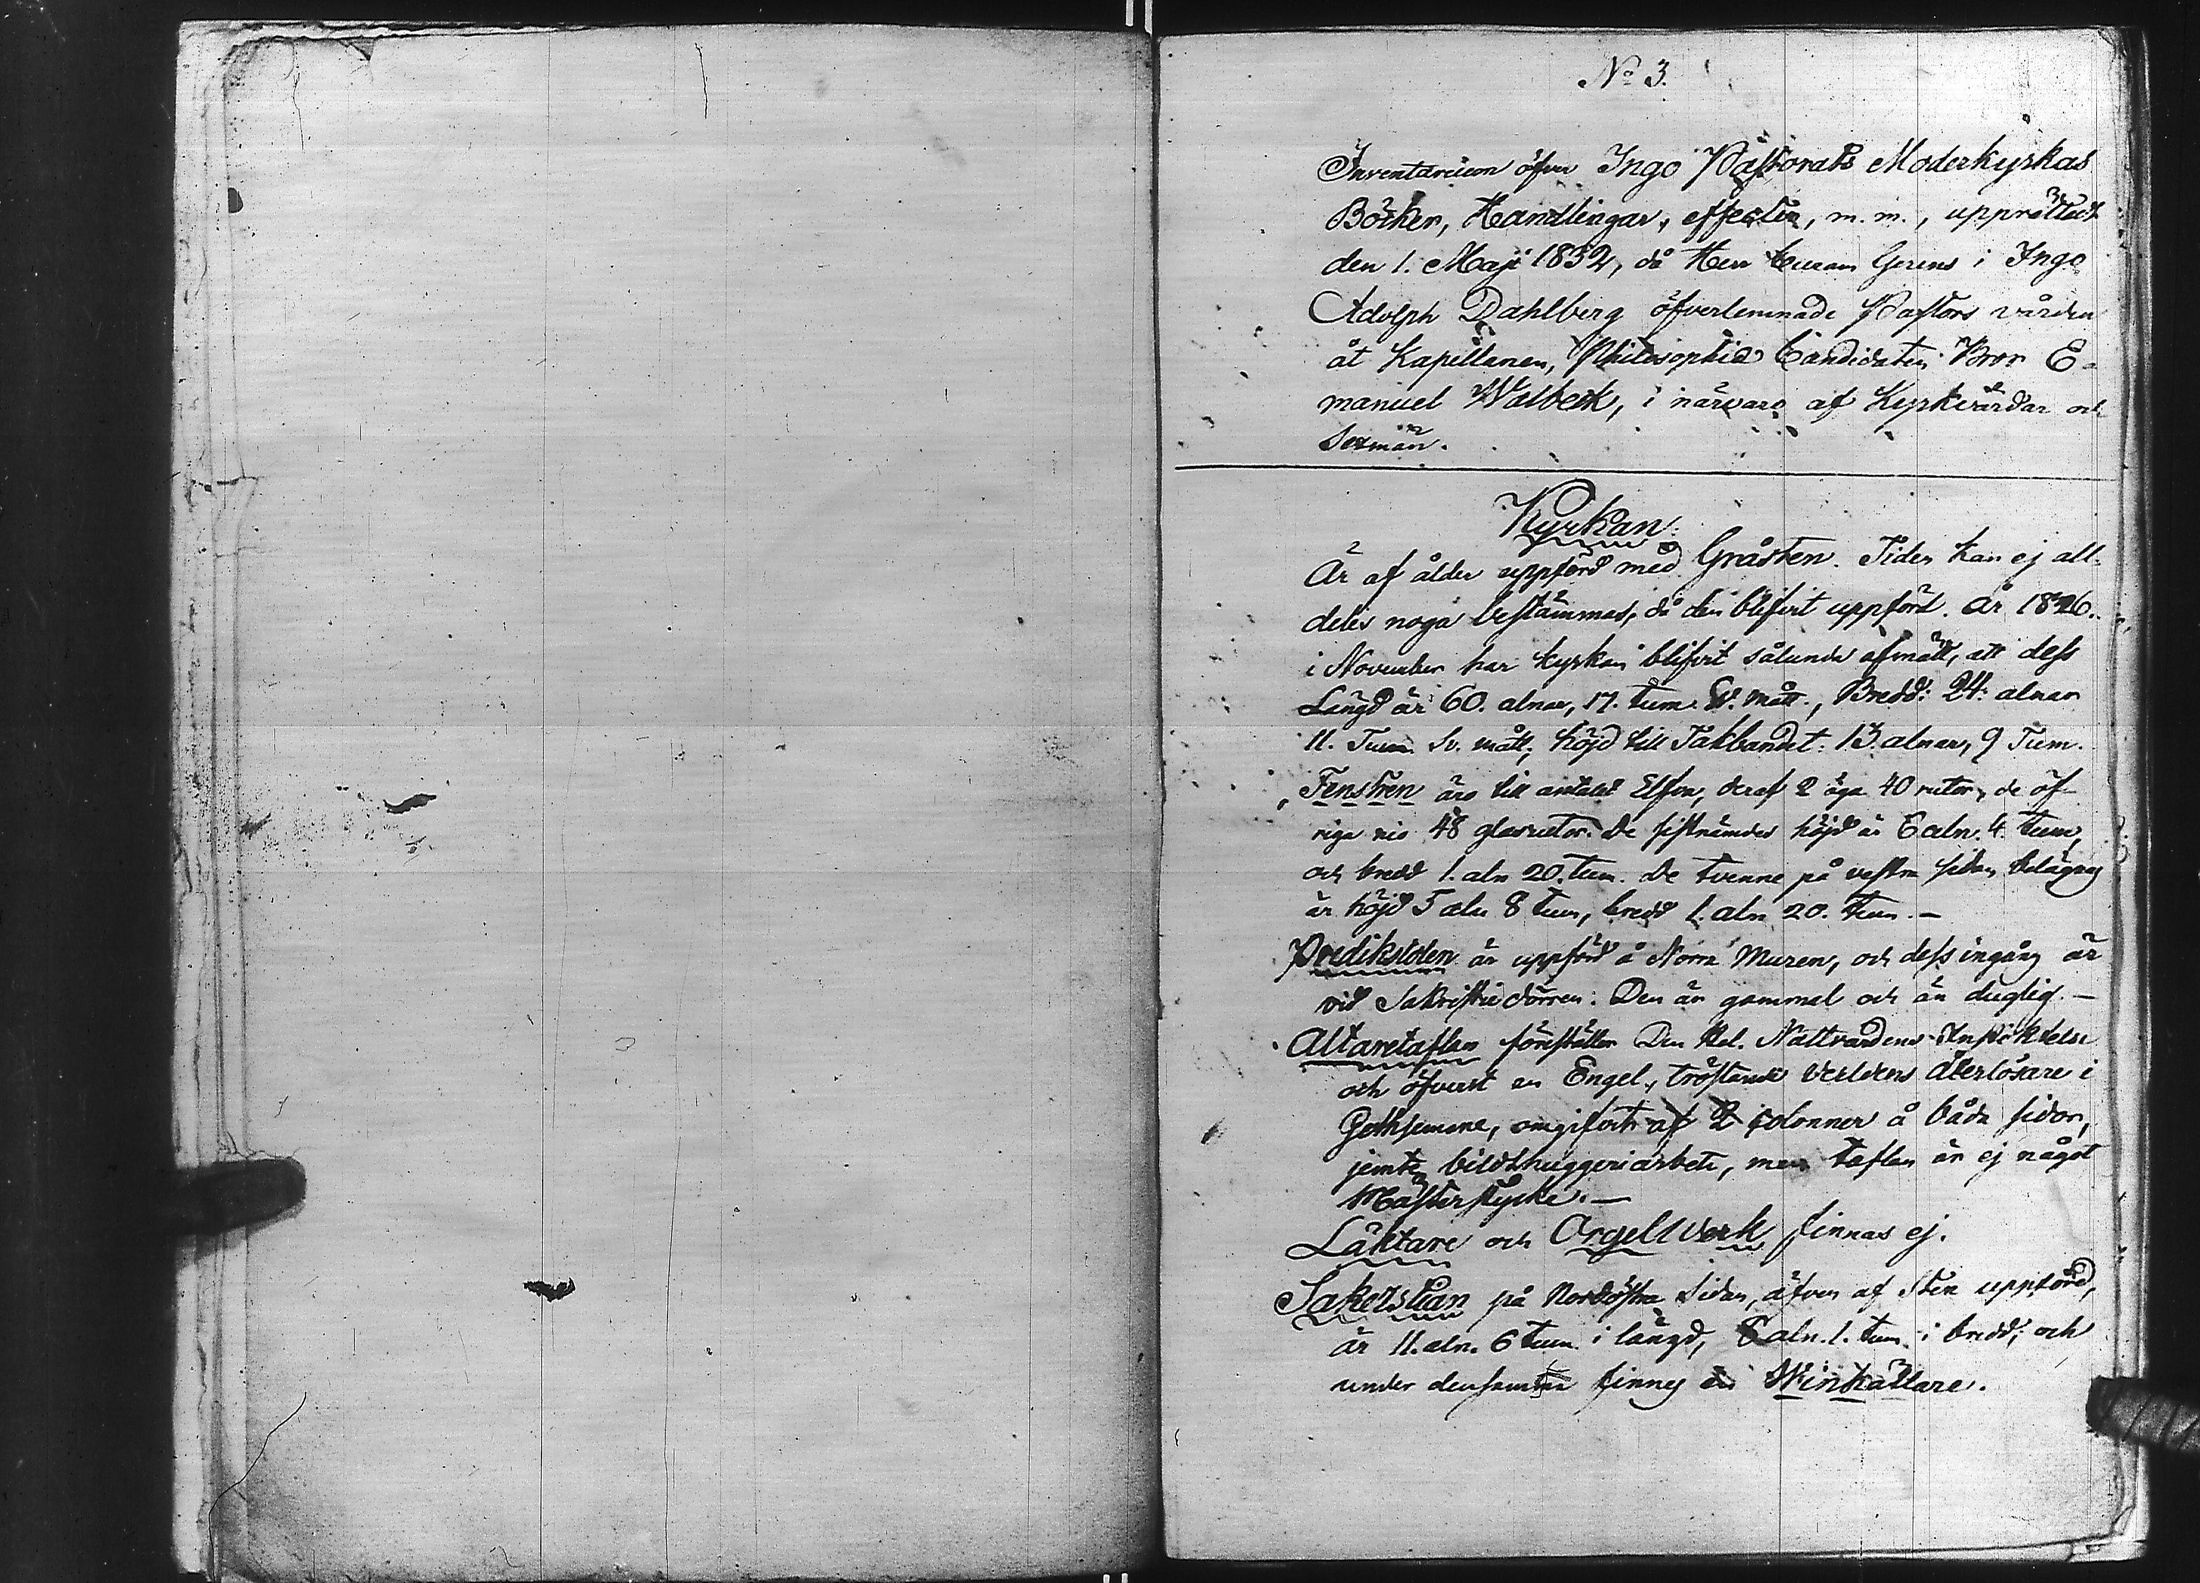 No 3.
Inventarium öfver Ingo Pastorats Moderkyrkas
Böcker, Handlingar, effecter, m. m., upprättadt
den 1. Maji 1832, då Herr Curam Gerens i Ingo
Adolph Dahlberg öfverlemnade Pastors vården
åt Kapellanen, Philosophiæ Candidaten Bror E-
manuel Walbeck, i närvaro af Kyrkvärdar och
Sexmän.
Kyrkan.
Är af ålder uppförd med Gråsten. Tiden kan ej all-
deles noga bestämmas, då den blifvit uppförd. År 1826.
i November har kyrkan blifvit sålunda afmätt, att dess
Längd är 60. alnar, 17. tum Sv. mått., Bredd: 24: alnar
11. Tum Sv. mått, höjd till Takbandet: 13. alnar, 9 Tum.
Fenstren äro till antalet Elfva, deraf 2 äga 40 rutor, de öf-
riga nio 48 glasrutor. De sistnämdas höjd är 6 aln. 4 tum,
och bredd 1. aln 20. tum. De tvenne på vestra sidan belägnas
är höjd 5 aln 8 tum, bredd 1. aln 20. tum. —
Predikstolen är uppförd å Norra Muren, och dess ingång är
vid Sakristie dörren. Den är gammal och än duglig. —
Altaretaflan föreställer Den Hel. Nattvardens Instiktelse
och öfverst en Engel, tröstande Verldens återlösare i
Gethsemane, omgifvit af 2 colonner å båda sidor,
jemte bildthuggeriarbete, men taflan är ej något
Mästerstycke. —
Läktare och Orgelverk finnas ej.
Sakerstian på Nordöstra Sidan, äfven af Sten uppförd,
är 11. aln. 6 tum i längd, 6 aln. 1. tum i bredd; och
under densamma finnes en Winkällare.